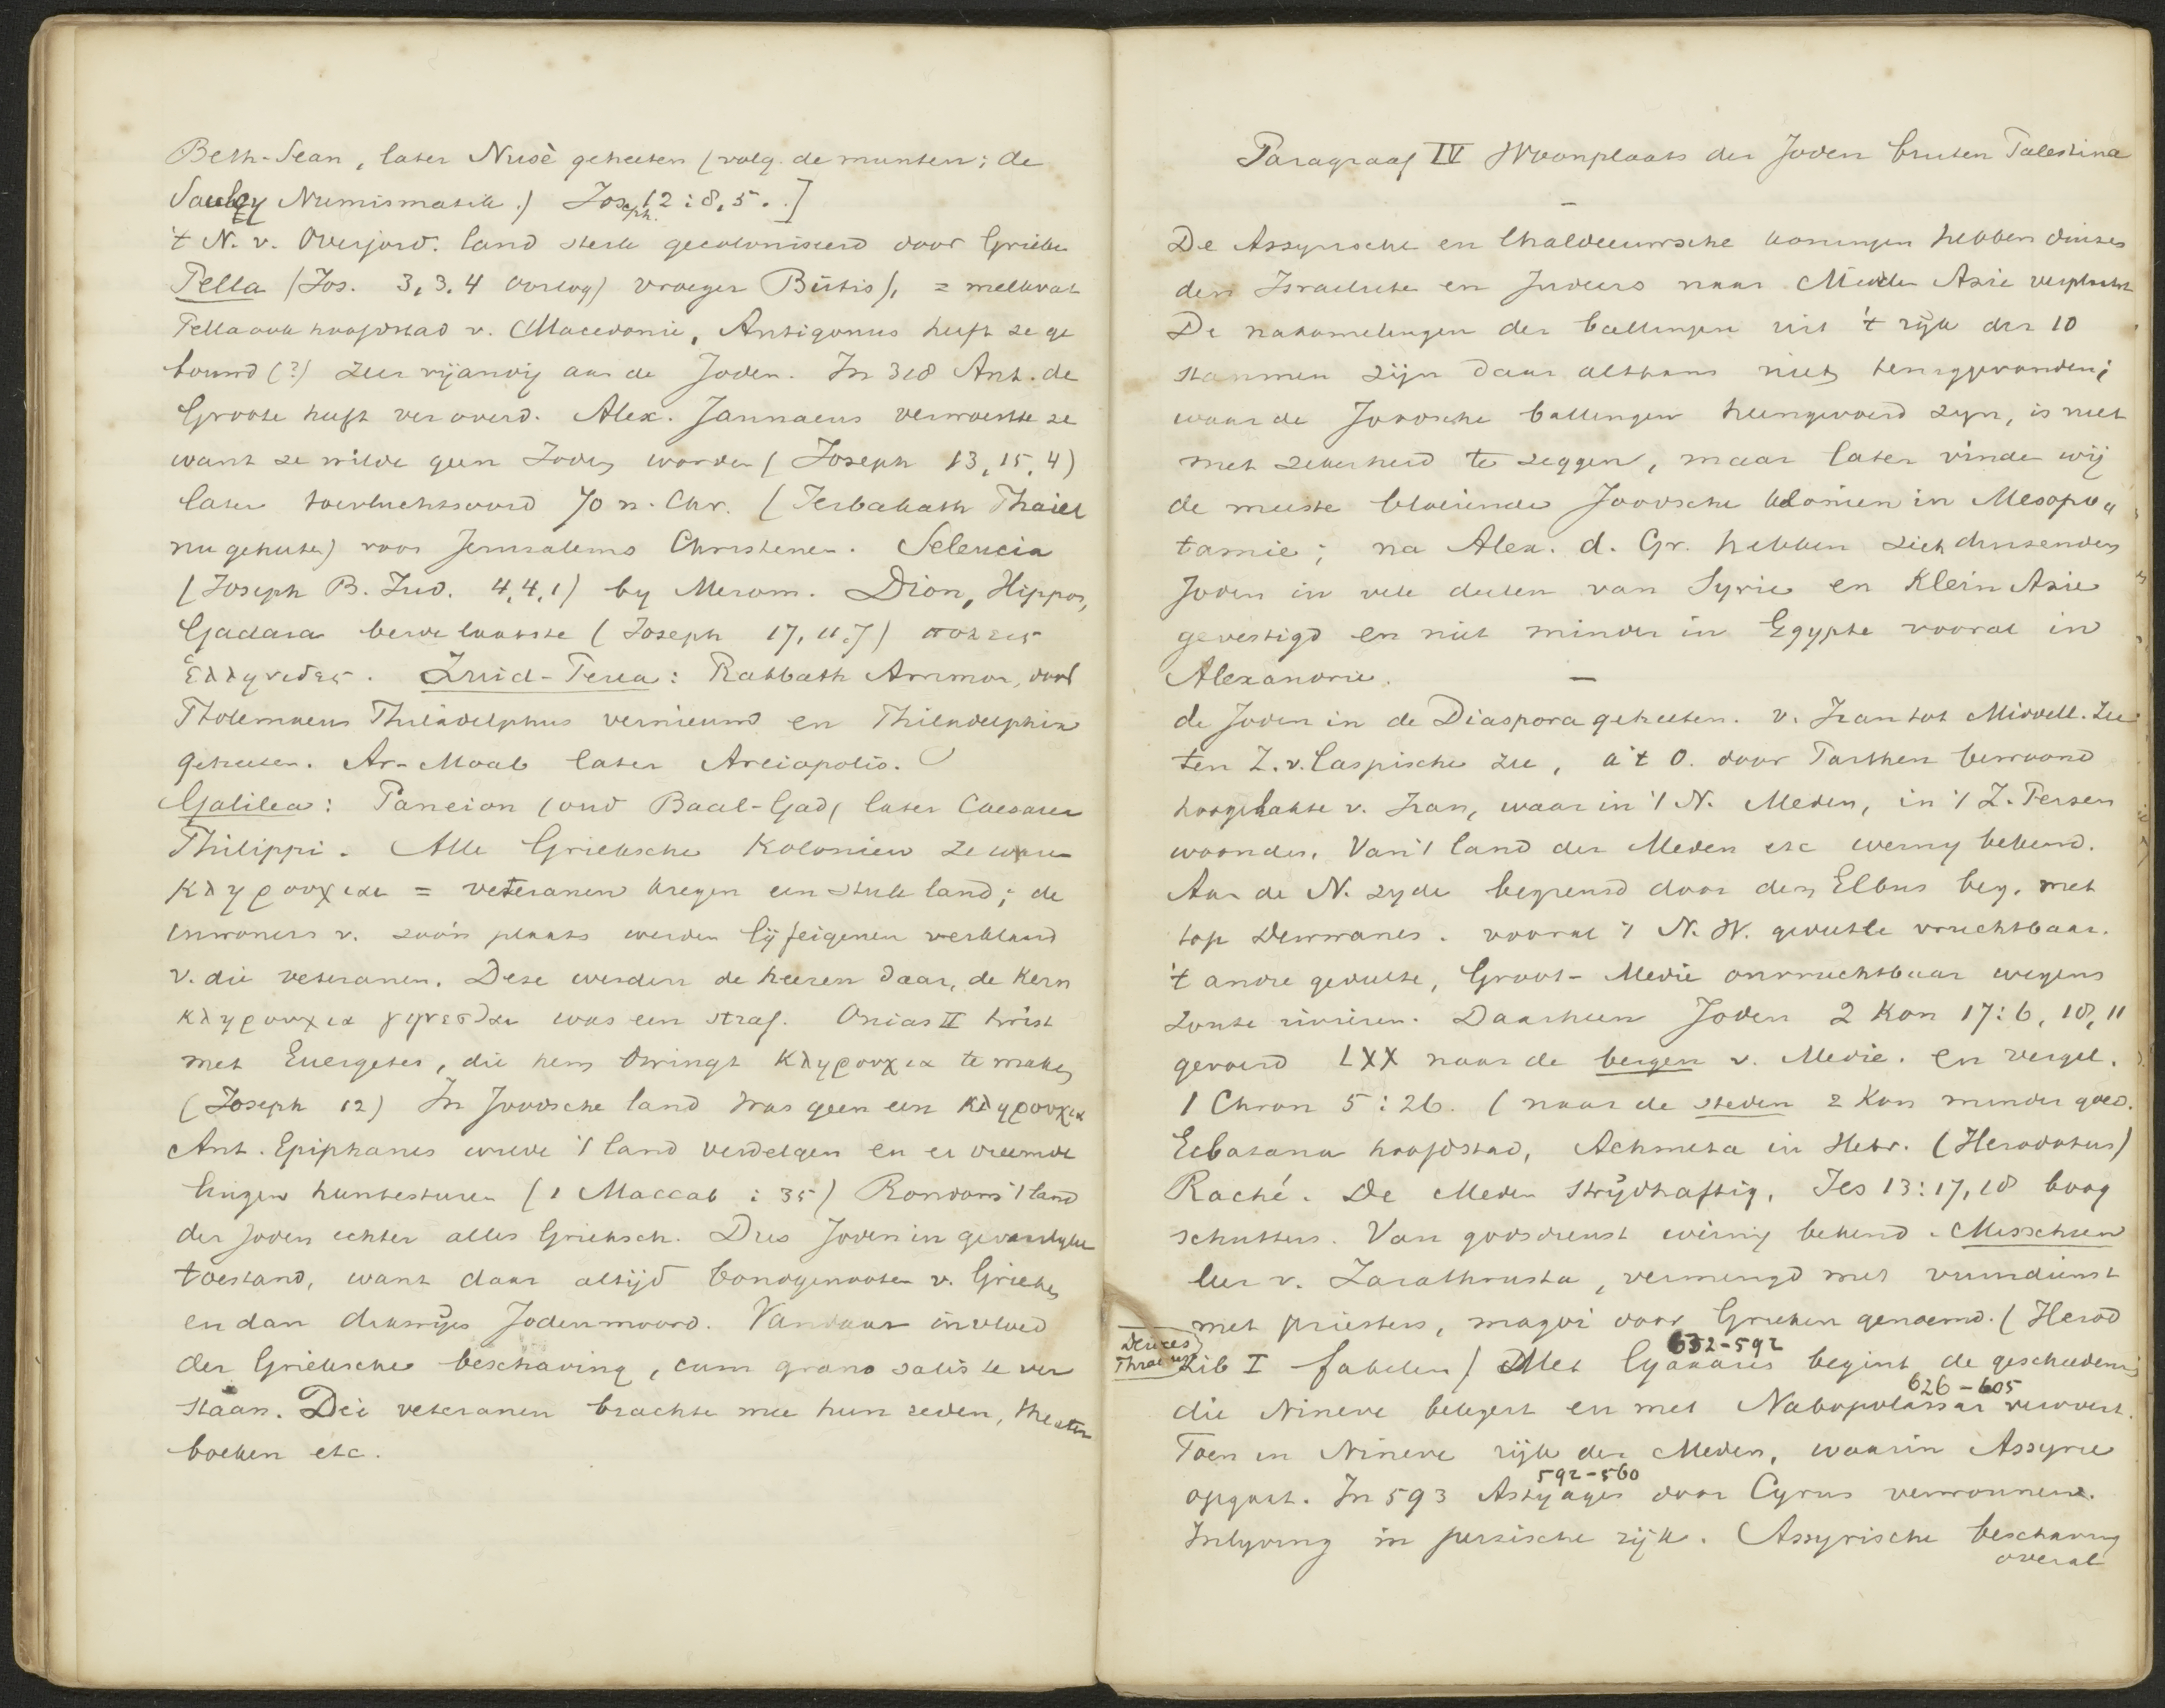 Beth-Sean, later Nusè geheeten (volg. de munten; de
Saulcy Numismatik.) Joseph. 12:8,5.]
't N. v. Overjord. land sterk gecoloniseerd door Grieken
Pella (Jos. 3,3.4 oorlog) vroeger Butis), = melkvat
Pella ook hoofdstad v. Macedonie, Antigonus heeft ze ge
bouwd (?) zeer vijandig aan de Joden. In 318 Ant. de
Groote heeft ver overd. Alex. Jannaeus verwoestte ze
want ze wilde geen Joden worden (Joseph 13,15,4)
later toevluchtsoord 70 n. Chr. (
nu geheeten) voor Jerusalems Christenen. Seleucia
(Joseph B. Jud. 4,4,1) by Merom. Dion, Hippos,
Gadara beide laatste (Joseph 17,11.7) πολεις
Ελληνιδες. Zuid-Perea: Rabbath Ammon, door
Ptolemaeus Philadelphus vernieuwd en Philadelphia
geheeten. Ar-Moab later Areiopolis.
Galilea: Paneion (oud Baal-Gad, later Caesarea
Philippi. Alle Grieksche Kolonien ze waren
κληρουχιαι = veteranen kregen een stuk land; de
inwoners v. zoo'n plaats werden lijfeigenen verklaard
v. die veteranen. Deze werden de heeren daar, de kern
κληρουχια γιγνεσθαι was een straf. Onias II twist
met Euergetes, die hem dwingt κληρουχια te maken
(Joseph 12) In Joodsche land was geen een κληρουχια
Ant. Epiphanes wilde 't land verdelgen en er vreemde
lingen huntesturen (1 Maccab : 35) Rondom 't land
der Joden echter alles Grieksch. Dus Joden in gevaarlyke
toestand, want daar altijd bondgenooten v. Grieken
en dan dikwijls Jodenmoord. Vandaar invloed
der Grieksche beschaving, cum grano salis te ver
staan. Die veteranen brachten mee hun zeden, theater
boeken etc.
Paragraaf IV Woonplaats der Joden buiten Palestina
De Assyrische en Chaldeeuwsche koningen hebben duizen
den Israelieten en Judeers naar Midden Azie verplaatst
De nakomelingen der ballingen uit 't rijk der 10
stammen zijn daar althans niet teruggevonden;
waar de Joodsche ballingen heengevoerd zyn, is niet
met zekerheid te zeggen, maar later vinden wij
de meeste bloeiende Joodsche kolonien in Mesopo
tamie; na Alex. d. Gr. hebben zich duizenden
Joden in vele deelen van Syrie en Klein Azie
gevestigd en niet minder in Egypte vooral in
Alexandrie.
de Joden in de Diaspora geheeten. v. Iran tot Middell. Zee
ten Z. v. Caspische zee, a't O. door Parthen bewoond
hoogvlakte v. Iran, waar in 't N. Meden, in 't Z. Persen
woonden. Van 't land der Meden etc weinig bekend.
Aan de N. zyde begrensd door den Elbrus berg. met
top . vooral 't N.W. gedeelte vruchtbaar.
't andre gedeelte, Groot-Medie onvruchtbaar wegens
zoute rivieren. Daarheen Joden 2 Kon 17:6, 18,11
gevoerd LXX naar de bergen v. Medie. en vergel.
1 Chron 5:26. (naar de steden 2 Kon minder goed.
Ecbatana hoofdstad, Achmeta in Hebr. (Herodotus)
Raché. De Meden strijdhaftig, Jes 13:17,18 boog
schutters. Van godsdienst weinig bekend. Misschien
leer v. Zarathrusta, vermengd met vuurdienst
met priesters, magoi door Grieken genoemd. (Herod
Deioces
Phraortes
Lib I fabelen) Met Cyaxares begint de geschiedenis
632-592
die Nineve belegert en met Nabopolassar verovert.
626-605
Toen in Nineve rijk der Meden, waarin Assyrie
opgaat. In 593 Astyages door Cyrus verwonnen.
592-560
Inlyving in perzische rijk. Assyrische beschaving
overal